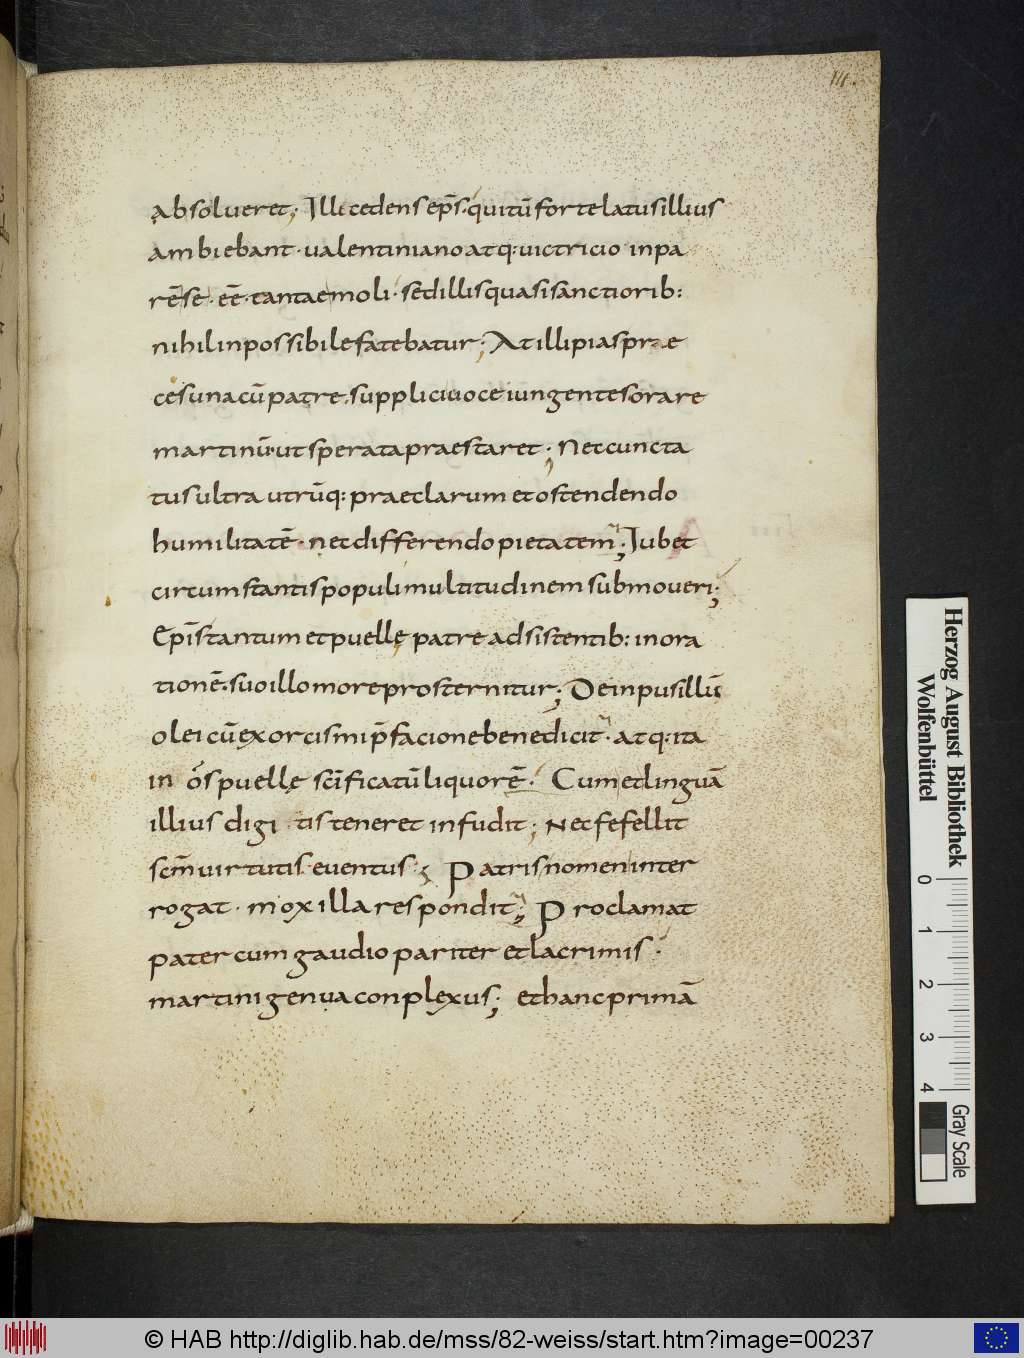 111.
absolueret; Ille cedens ep̅s. qui tū forte latus illius
ambiebant · ualentiniano atq: uictricio inpa
rē se · eē · tantae moli · sed illis quasi sanctiorib:
nihil inpossibile fatebatur; At illi pias prae
ces una cū patre. supplici uoce iungentes orare
martinū · ut sperata praestaret; Nec cuncta
tus ultra utrūq: praeclarum et ostendendo
humilitatē · nec differendo pietatem; Iubet
circumstantis populi multitudinem submoueri;
Ep̅is tantum et puellę patre adsistentib: in ora
tionē. suo illo more prosternitur; Dein pusillū
olei cū exorcismi p̄facione benedicit · atq: ita
in os puellę sc̅ificatū liquorē · Cum et linguā
illius digi tis teneret infudit; Nec fefellit
sc̅m uirtutis · euentus; Patris nomen inter
rogat · mox illa respondit; Proclamat
pater cum gaudio pariter et lacrimis ·
martini genua conplexus; et hanc primā
Herzog August Bibliothek
Wolfenbüttel
0 1 2 3 4
Gray Scale
© HAB http://diglib.hab.de/mss/82-weiss/start.htm?image=00237